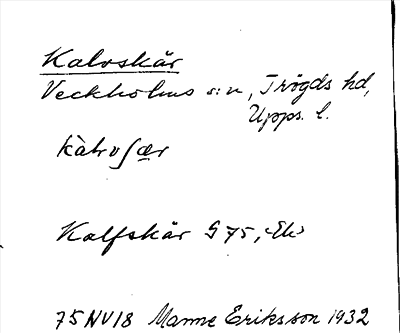 Kalvskär
Veckholms s:n, Trögds hd,
Upps. l.
Kalfskär G 75, Ek
75NV18 Manne Eriksson 1932